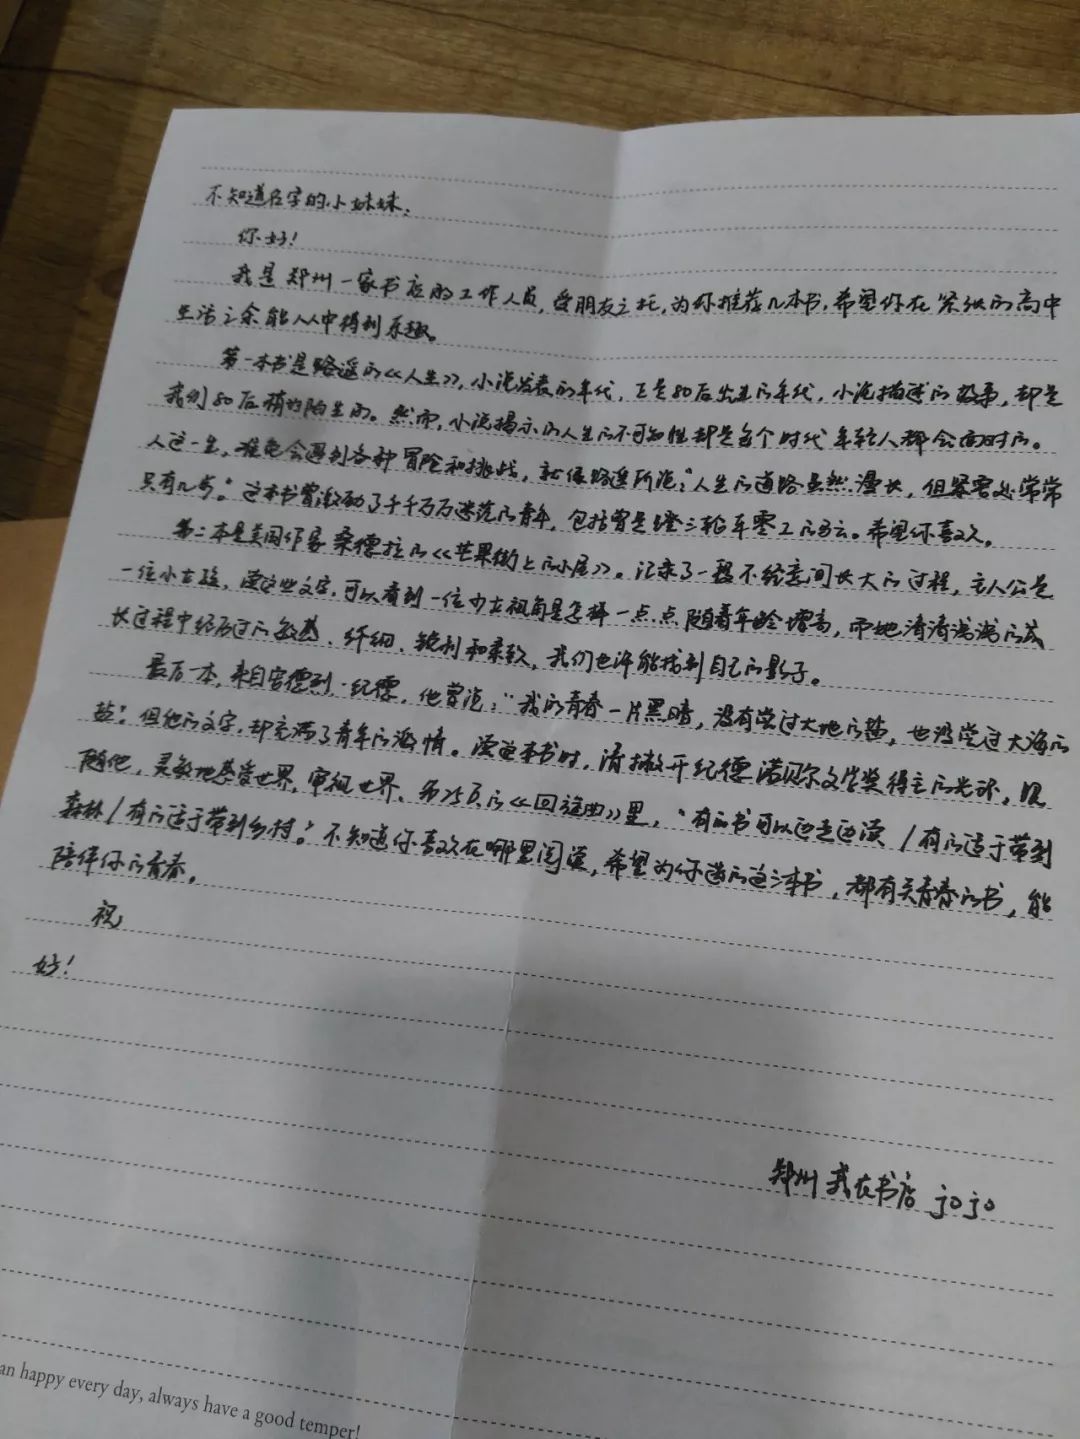 不知道名字的小妹妹,
你好!
我是郑州一家书店的工作人员,受朋友之托,为你推荐几本书,希望你在紧张的高中
生活之余能从中得到乐趣。
第一本书是路遥的《人生》,小说发表的年代,正是80后出生的年代,小说描述的故事,却是
我们80后稍为陌生的。然而,小说揭示的人生的不可知性却是每个时代年轻人都会面对的。
人这一生,难免会遇到各种冒险和挑战,就像路遥所说:"人生的道路虽然漫长,但紧要处常常
只有几步。"这本书曾激励了千千万万迷茫的青年,包括曾是蹬三轮车零工的马云。希望你喜欢。
第二本是美国作家桑德拉的《芒果街上的小屋》。记录了一段不经意间长大的过程,主人公是
一位小女孩,读这些文字,可以看到一位少女视角是怎样一点点随着年龄增高,而她清清浅浅的成
长过程中经历过的敏感、纤细、锐利和柔软,我们也许能找到自己的影子。
最后一本,来自安德烈·纪德,他曾说:"我的青春一片黑暗,没有尝过大地的盐,也没尝过大海的
盐。"但他的文字,却充满了青年的激情。读这本书时,请撇开纪德诺贝尔文学奖得主的光环,跟
随他,灵敏地感受世界,审视世界、第25页的《回旋曲》里,"有的书可以边走边读/有的适于带到
森林/有的适于带到乡村。"不知道你喜欢在哪里阅读,希望为你选的这三本书,都有关青春的书,能
陪伴你的青春。
祝
好!
郑州 我在书店 jojo
an happy every day, always have a good temper!